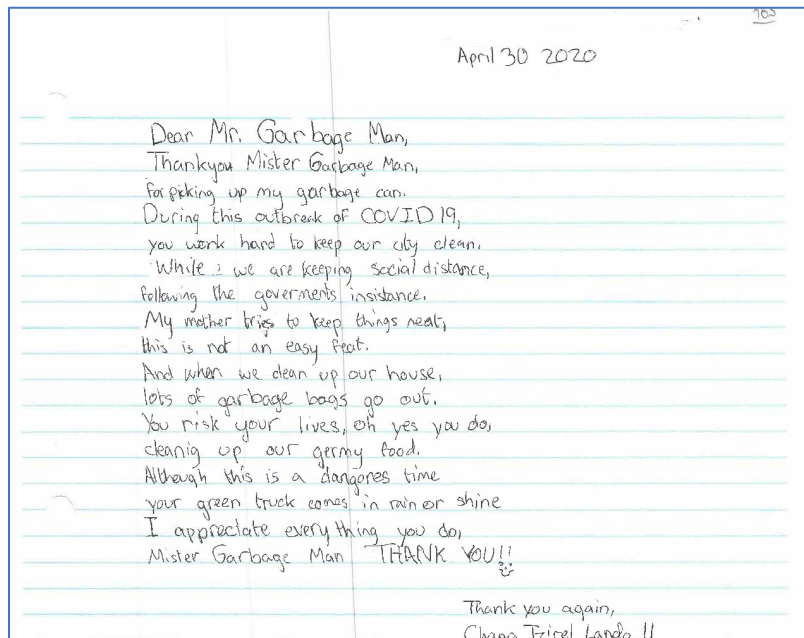 April 30 2020
Dear Mr. Garbage Man,
Thankyou Mister Garbage Man,
for picking up my garbage can.
During this outbreak of COVID 19,
you work hard to keep our city clean.
While we are keeping social distance,
following the goverments insistance.
My mother tries to keep things neat,
this is not an easy feat.
And when we clean up our house,
lots of garbage bags go out.
You risk your lives, oh yes you do,
cleanig up our germy food.
Although this is a dangores time
your green truck comes in rain or shine
I appreciate every thing you do,
Mister Garbage Man THANK YOU!!
Thank you again,